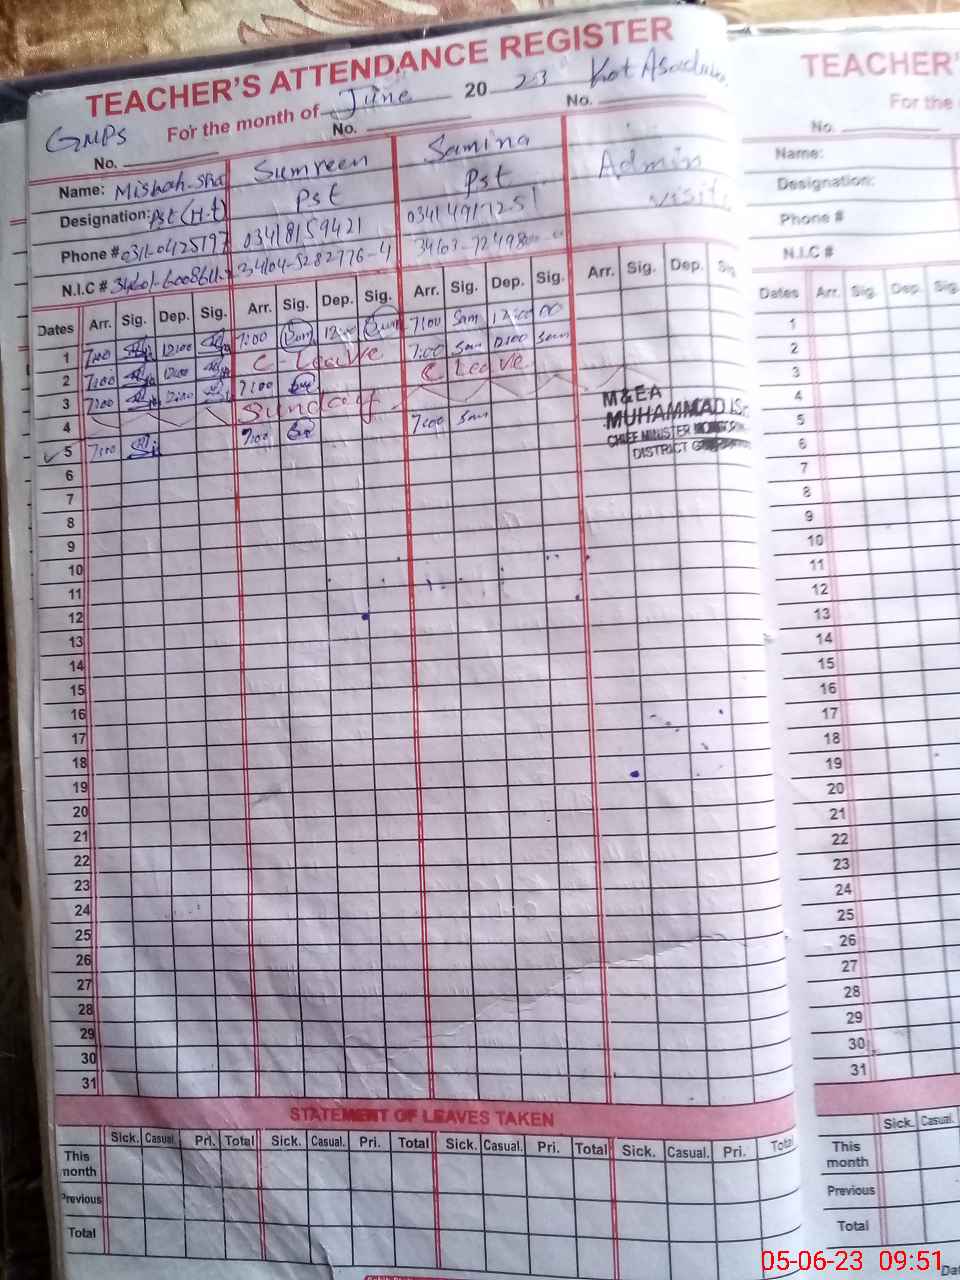 TEACHER'S ATTENDANCE REGISTER
GMPS For the month of June 20 23 Kot
No. No. No.
Name: Misbah Sumreen Samina Admin
Designation: Pst (H.t) Pst Pst visit
Phone # 03418159421 03414917251
N.I.C # 34104-5282776-4
Dates Arr. Sig. Dep. Sig. Arr. Sig. Dep. Sig. Arr. Sig. Dep. Sig. Arr. Sig. Dep. Sig.
1 7:00 12:00 7:00 Sum 12:00 Sum 7:00 Sam 12:00
2 7:00 12:00 C-Leave 7:00 Sam 12:00 Sam
3 7:00 12:00 7:00 C Leave
4 Sunday
5 7:00 7:00 7:00 Sam
M&EA
MUHAMMAD
CHIEF MINISTER
DISTRICT
6
7
8
9
10
11
12
13
14
15
16
17
18
19
20
21
22
23
24
25
26
27
28
29
30
31
STATEMENT OF LEAVES TAKEN
Sick. Casual. Pri. Total Sick. Casual. Pri. Total Sick. Casual. Pri. Total Sick. Casual. Pri. Total
This month
Previous
Total
TEACHER'
For the
No.
Name:
Designation:
Phone #
N.I.C #
Dates Arr. Sig. Dep. Sig.
1
2
3
4
5
6
7
8
9
10
11
12
13
14
15
16
17
18
19
20
21
22
23
24
25
26
27
28
29
30
31
Sick. Casual.
This month
Previous
Total
05-06-23 09:51